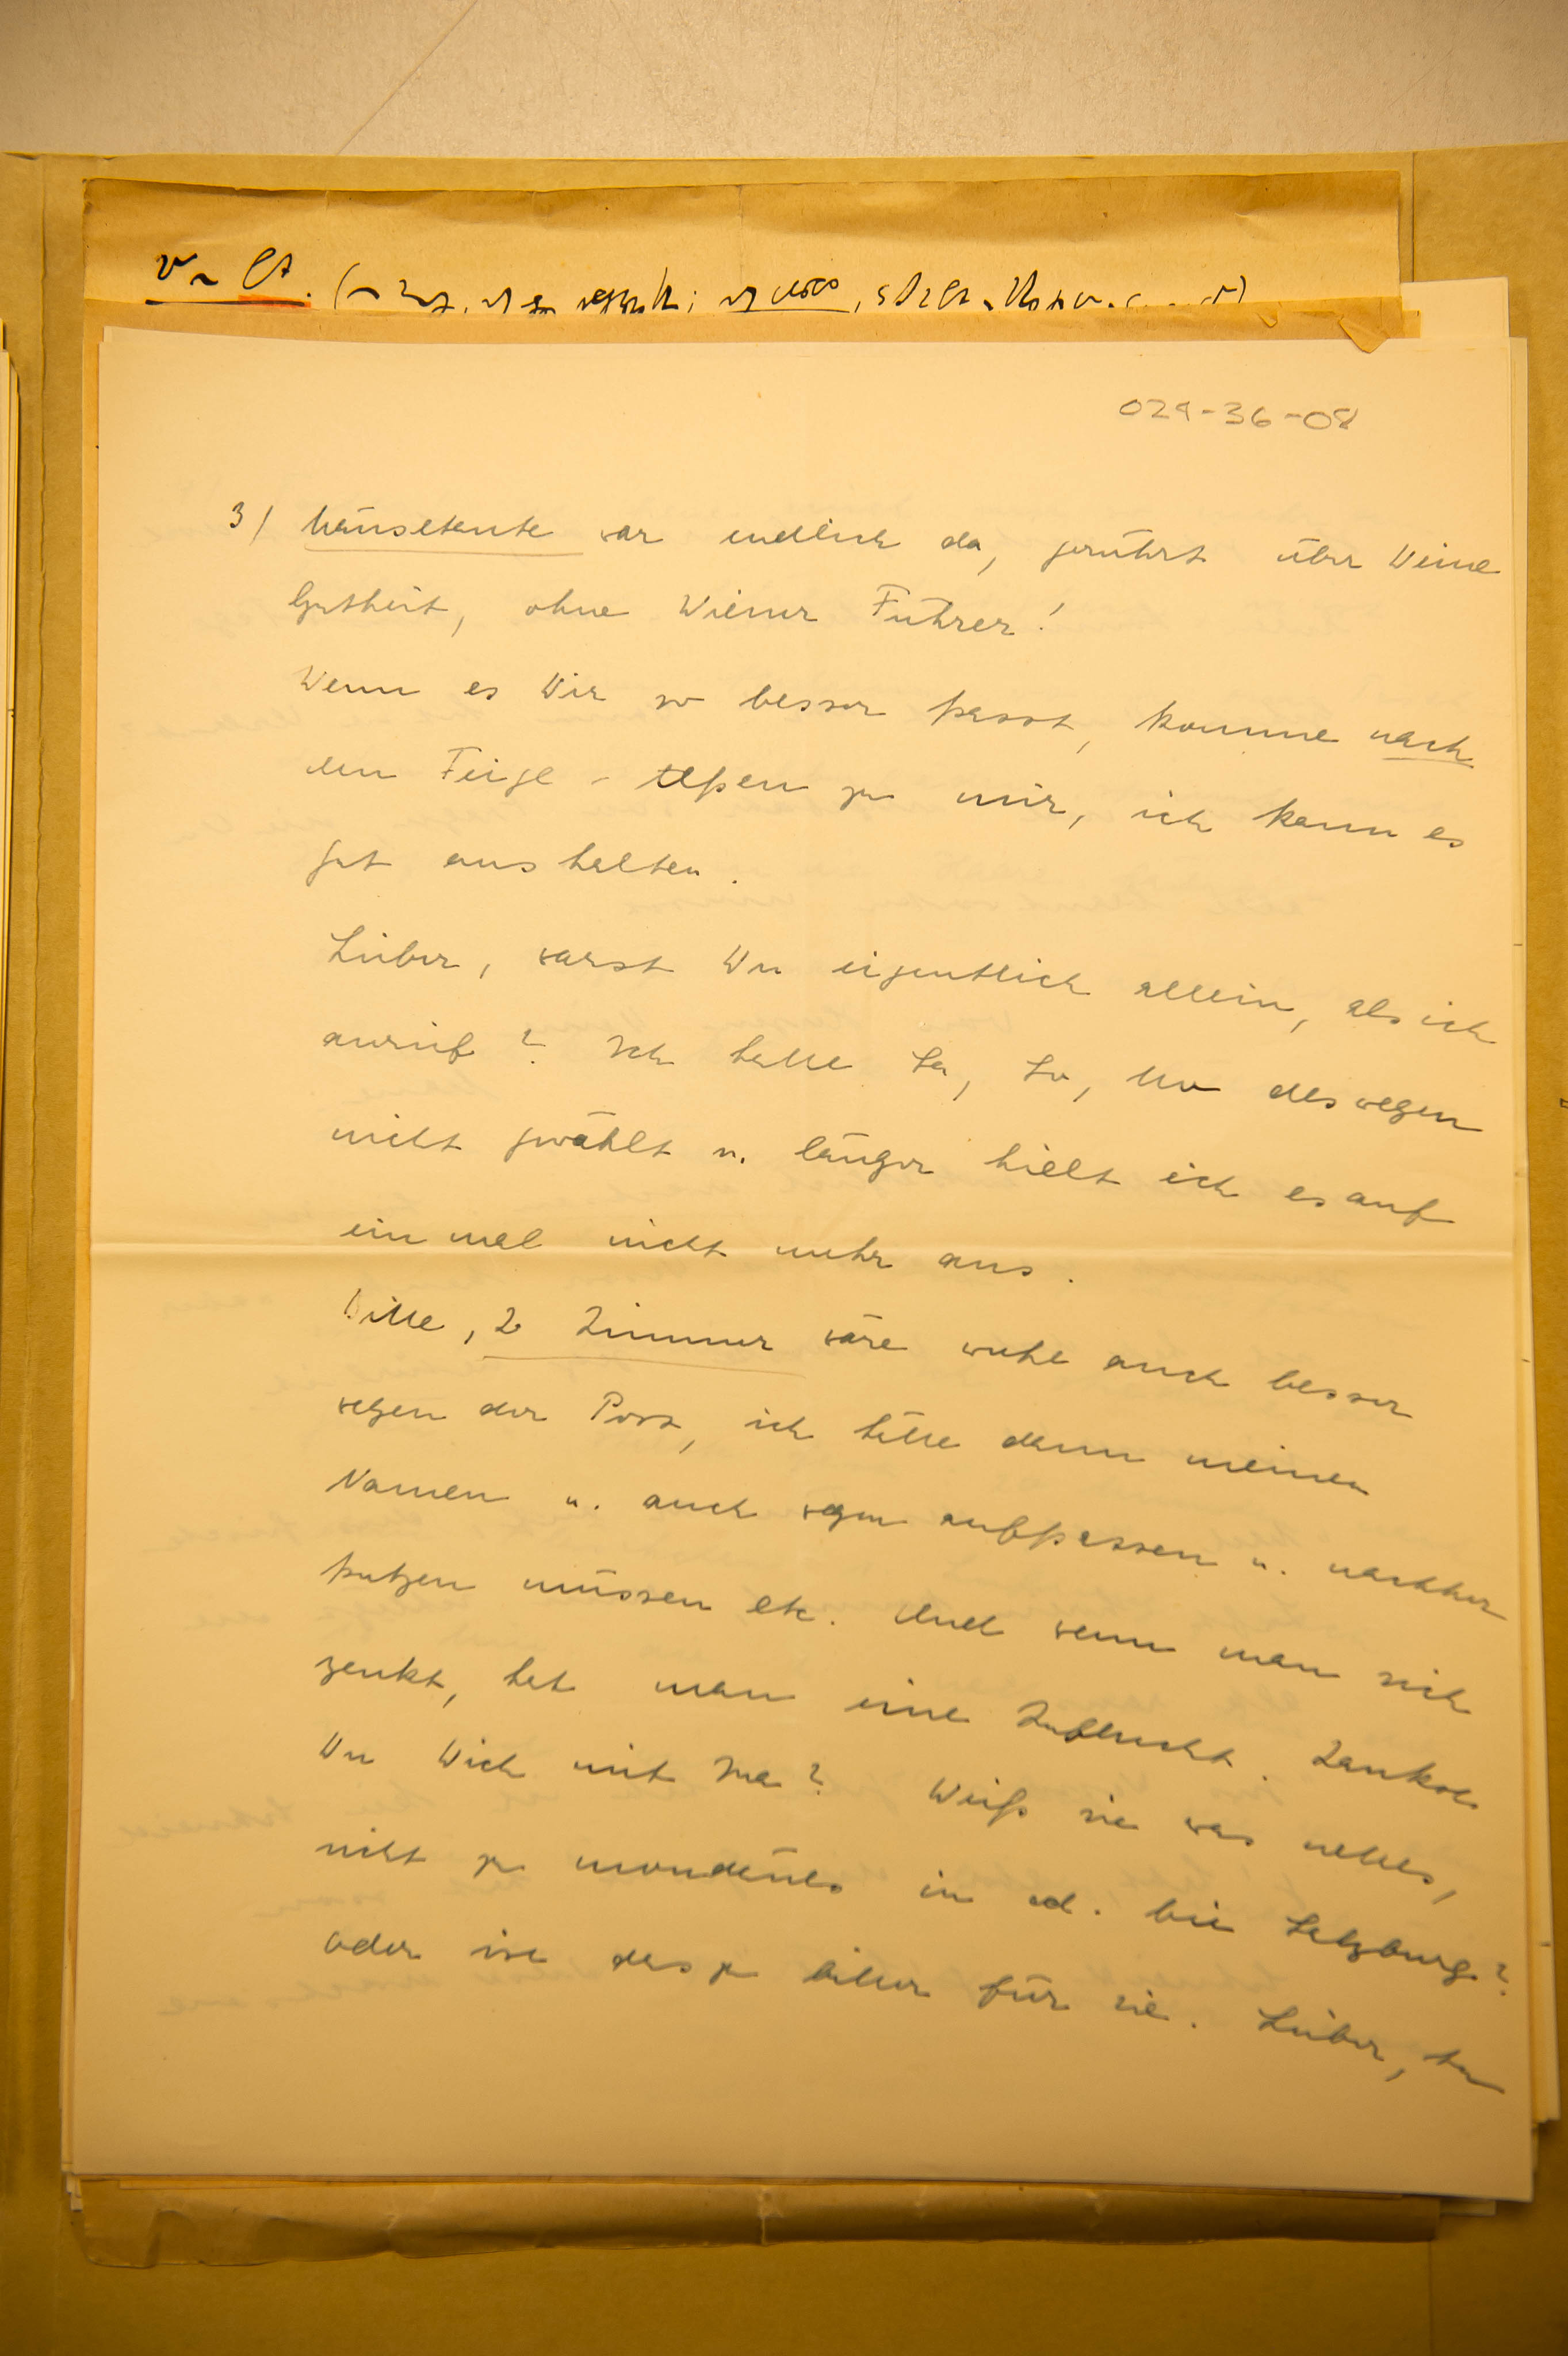 024-36-08
3) Mäusetante war endlich da, gerührt über Deine
Gutheit, ohne Wiener Führer!
Wenn es Dir so besser passt, komme nach
dem Feigl-Essen zu mir, ich kann es
gut aushalten.
Lieber, warst Du eigentlich allein, als ich
anrief? Ich hatte Sa, So, Mo deswegen
nicht gewählt u. länger hielt ich es auf
einmal nicht mehr aus.
Bitte, 2 Zimmer wäre wohl auch besser
wegen der Post, ich hätte dann meinen
Namen u. auch wegen aufpassen u. nachher
putzen müssen etc. Und wenn man sich
zankt, hat man eine Zuflucht. Zankst
Du Dich mit Ina? Weiß sie was nettes,
nicht zu mondänes in od. bei Salzburg?
oder ist das zu bitter für sie. Lieber,